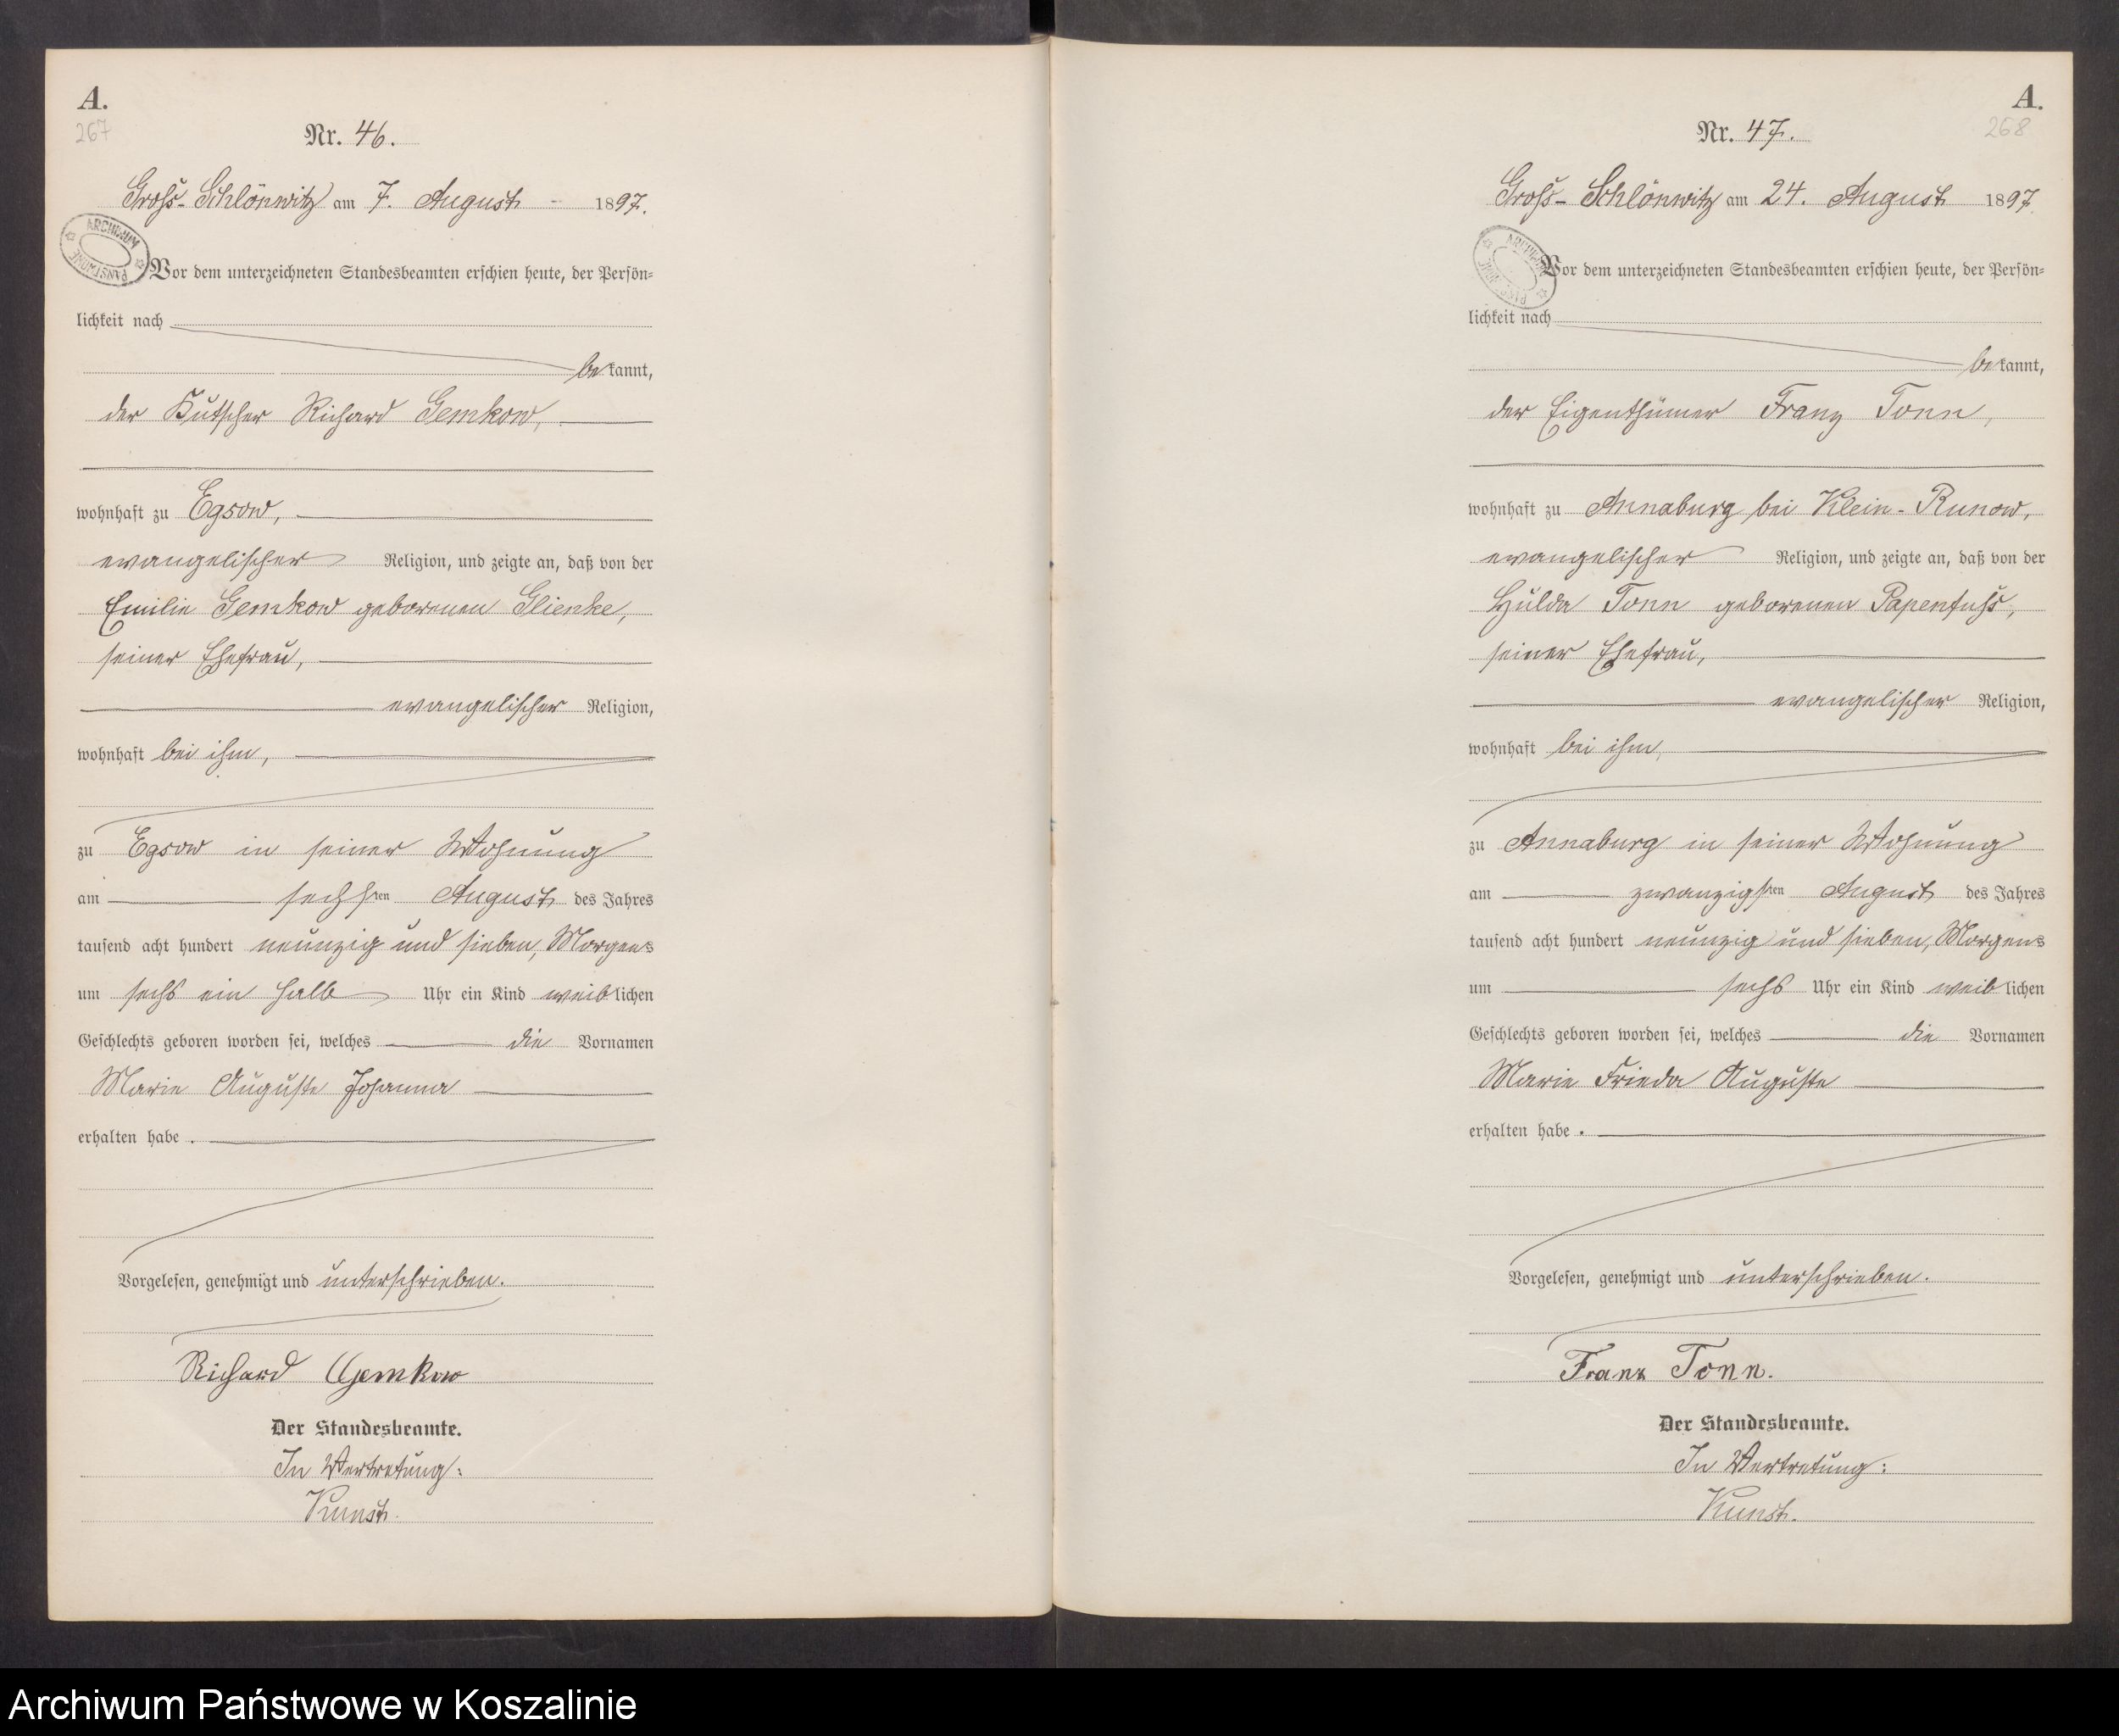 A.
267
Nr. 46.
Groß-Schlönwitz am 7. August 1897.
ARCHIWUM PAŃSTWOWE
Vor dem unterzeichneten Standesbeamten erschien heute, der Persön=
lichkeit nach
bekannt,
der Kutscher Richard Gemkow,
wohnhaft zu Egsow,
evangelischer Religion, und zeigte an, daß von der
Emilie Gemkow geborenen Glienke,
seiner Ehefrau,
evangelischer Religion,
wohnhaft bei ihm,
zu Egsow in seiner Wohnung
am sechsten August des Jahres
tausend acht hundert neunzig und sieben, Morgens
um sechs ein halb Uhr ein Kind weiblichen
Geschlechts geboren worden sei, welches die Vornamen
Marie Auguste Johanna
erhalten habe.
Vorgelesen, genehmigt und unterschrieben.
Richard Gemkow
Der Standesbeamte.
In Vertretung:
Kunst.
A.
268
Nr. 47.
Groß-Schlönwitz am 24. August 1897.
ARCHIWUM PAŃSTWOWE
Vor dem unterzeichneten Standesbeamten erschien heute, der Persön=
lichkeit nach
bekannt,
der Eigenthümer Franz Tonn,
wohnhaft zu Annaburg bei Klein-Runow,
evangelischer Religion, und zeigte an, daß von der
Hulda Tonn geborenen Papenfuß,
seiner Ehefrau,
evangelischer Religion,
wohnhaft bei ihm,
zu Annaburg in seiner Wohnung
am zwanzigsten August des Jahres
tausend acht hundert neunzig und sieben, Morgens
um sechs Uhr ein Kind weiblichen
Geschlechts geboren worden sei, welches die Vornamen
Marie Frieda Auguste
erhalten habe.
Vorgelesen, genehmigt und unterschrieben.
Franz Tonn.
Der Standesbeamte.
In Vertretung:
Kunst.
Archiwum Państwowe w Koszalinie